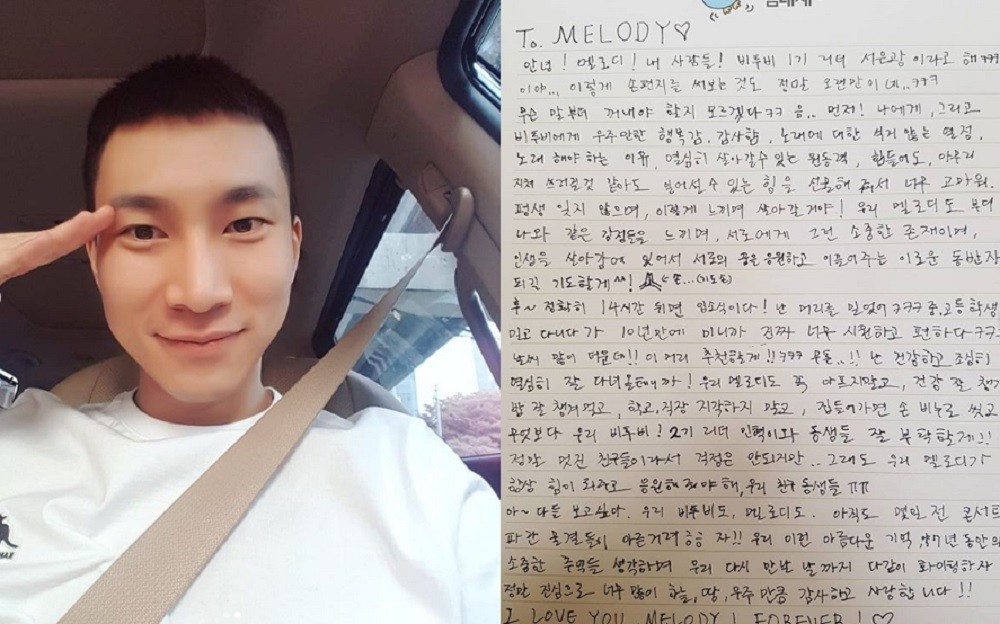 To. MELODY♡
안녕! 멜로디! 내 사람들! 비투비 1기 리더 서은광 이라고 해 ㅋㅋㅋ
이야... 이렇게 손편지를 써보는 것도 정말 오랜만이네..ㅋㅋㅋ
무슨 말부터 꺼내야 할지 모르겠다 ㅋㅋ 음.. 먼저! 나에게, 그리고
비투비에게 우주만한 행복감, 감사함, 노래에 대한 식지 않는 열정,
노래 해야 하는 이유, 열심히 살아갈수 있는 원동력, 힘들어도, 아무리
지쳐 쓰러질것 같아도 일어설수 있는 힘을 선물해 줘서 너무 고마워.
평생 잊지 않으며, 이렇게 느끼며 살아갈거야! 우리 멜로디도 부디
나와 같은 감정들을 느끼며, 서로에게 그런 소중한 존재이며,
인생을 살아감에 있어서 서로의 꿈을 응원하고 이끌어주는 이로운 동반자
되길 기도할게^^! 손...(기도손)
후~ 정확히 14시간 뒤면 입소식이다! 난 머리를 밀었어 ㅋㅋㅋ 중,고등학생
밀고 다니다가 10년만에 미니까 진짜 너무 시원하고 편하다 ㅋㅋ
날씨 많이 더운데!! 이 머리 추천할게!! ㅋㅋㅋ 무튼..!! 난 건강하고 조심히
열심히 잘 다녀올테니까! 우리 멜로디도 꼭 아프지말고, 건강 잘 챙기
밥 잘 챙겨먹고, 학교,직장 지각하지 말고, 집들어가면 손 비누로 씻고
무엇보다 우리 비투비! 2기 리더 민혁이와 동생들 잘 부탁할게!!
정말 멋진 친구들이라서 걱정은 안되지만.. 그래도 우리 멜로디가
항상 힘이 되주고 응원해 줘야해, 우리 친구 동생들 ㅠㅠ
아~ 다들 보고싶다. 우리 비투비도, 멜로디도. 아직도 몇일 전 콘서트
파란 물결들이 아른거려 하하 자!! 우리 이런 아름다운 기억, 약 7년 동안의
소중한 추억들 생각하며 우리 다시 만날 날까지 다같이 화이팅하자
정말 진심으로 너무 많이 하늘, 땅, 우주만큼 감사하고 사랑합니다!!
I LOVE YOU MELODY! FOREVER!♡